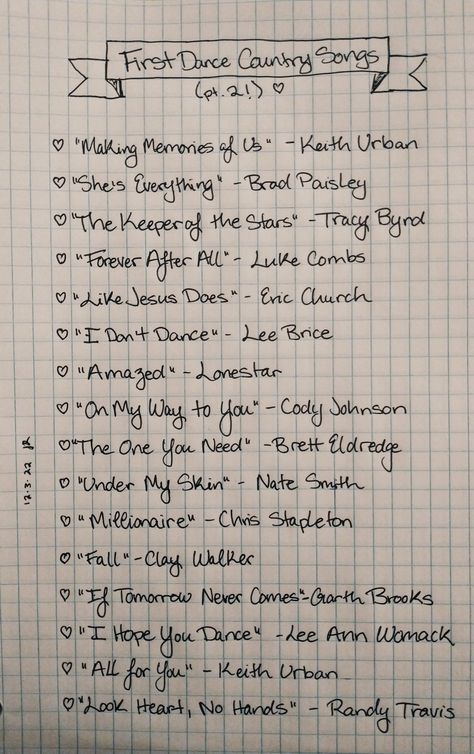 First Dance Country Songs
(pt. 2!) ♡
♡ "Making Memories of Us" - Keith Urban
♡ "She's Everything" - Brad Paisley
♡ "The Keeper of the Stars" - Tracy Byrd
♡ "Forever After All" - Luke Combs
♡ "Like Jesus Does" - Eric Church
♡ "I Don't Dance" - Lee Brice
♡ "Amazed" - Lonestar
♡ "On My Way to You" - Cody Johnson
♡ "The One You Need" - Brett Eldredge
♡ "Under My Skin" - Nate Smith
♡ "Millionaire" - Chris Stapleton
♡ "Fall" - Clay Walker
♡ "If Tomorrow Never Comes" - Garth Brooks
♡ "I Hope You Dance" - Lee Ann Womack
♡ "All for You" - Keith Urban
♡ "Look Heart, No Hands" - Randy Travis
12.3.22